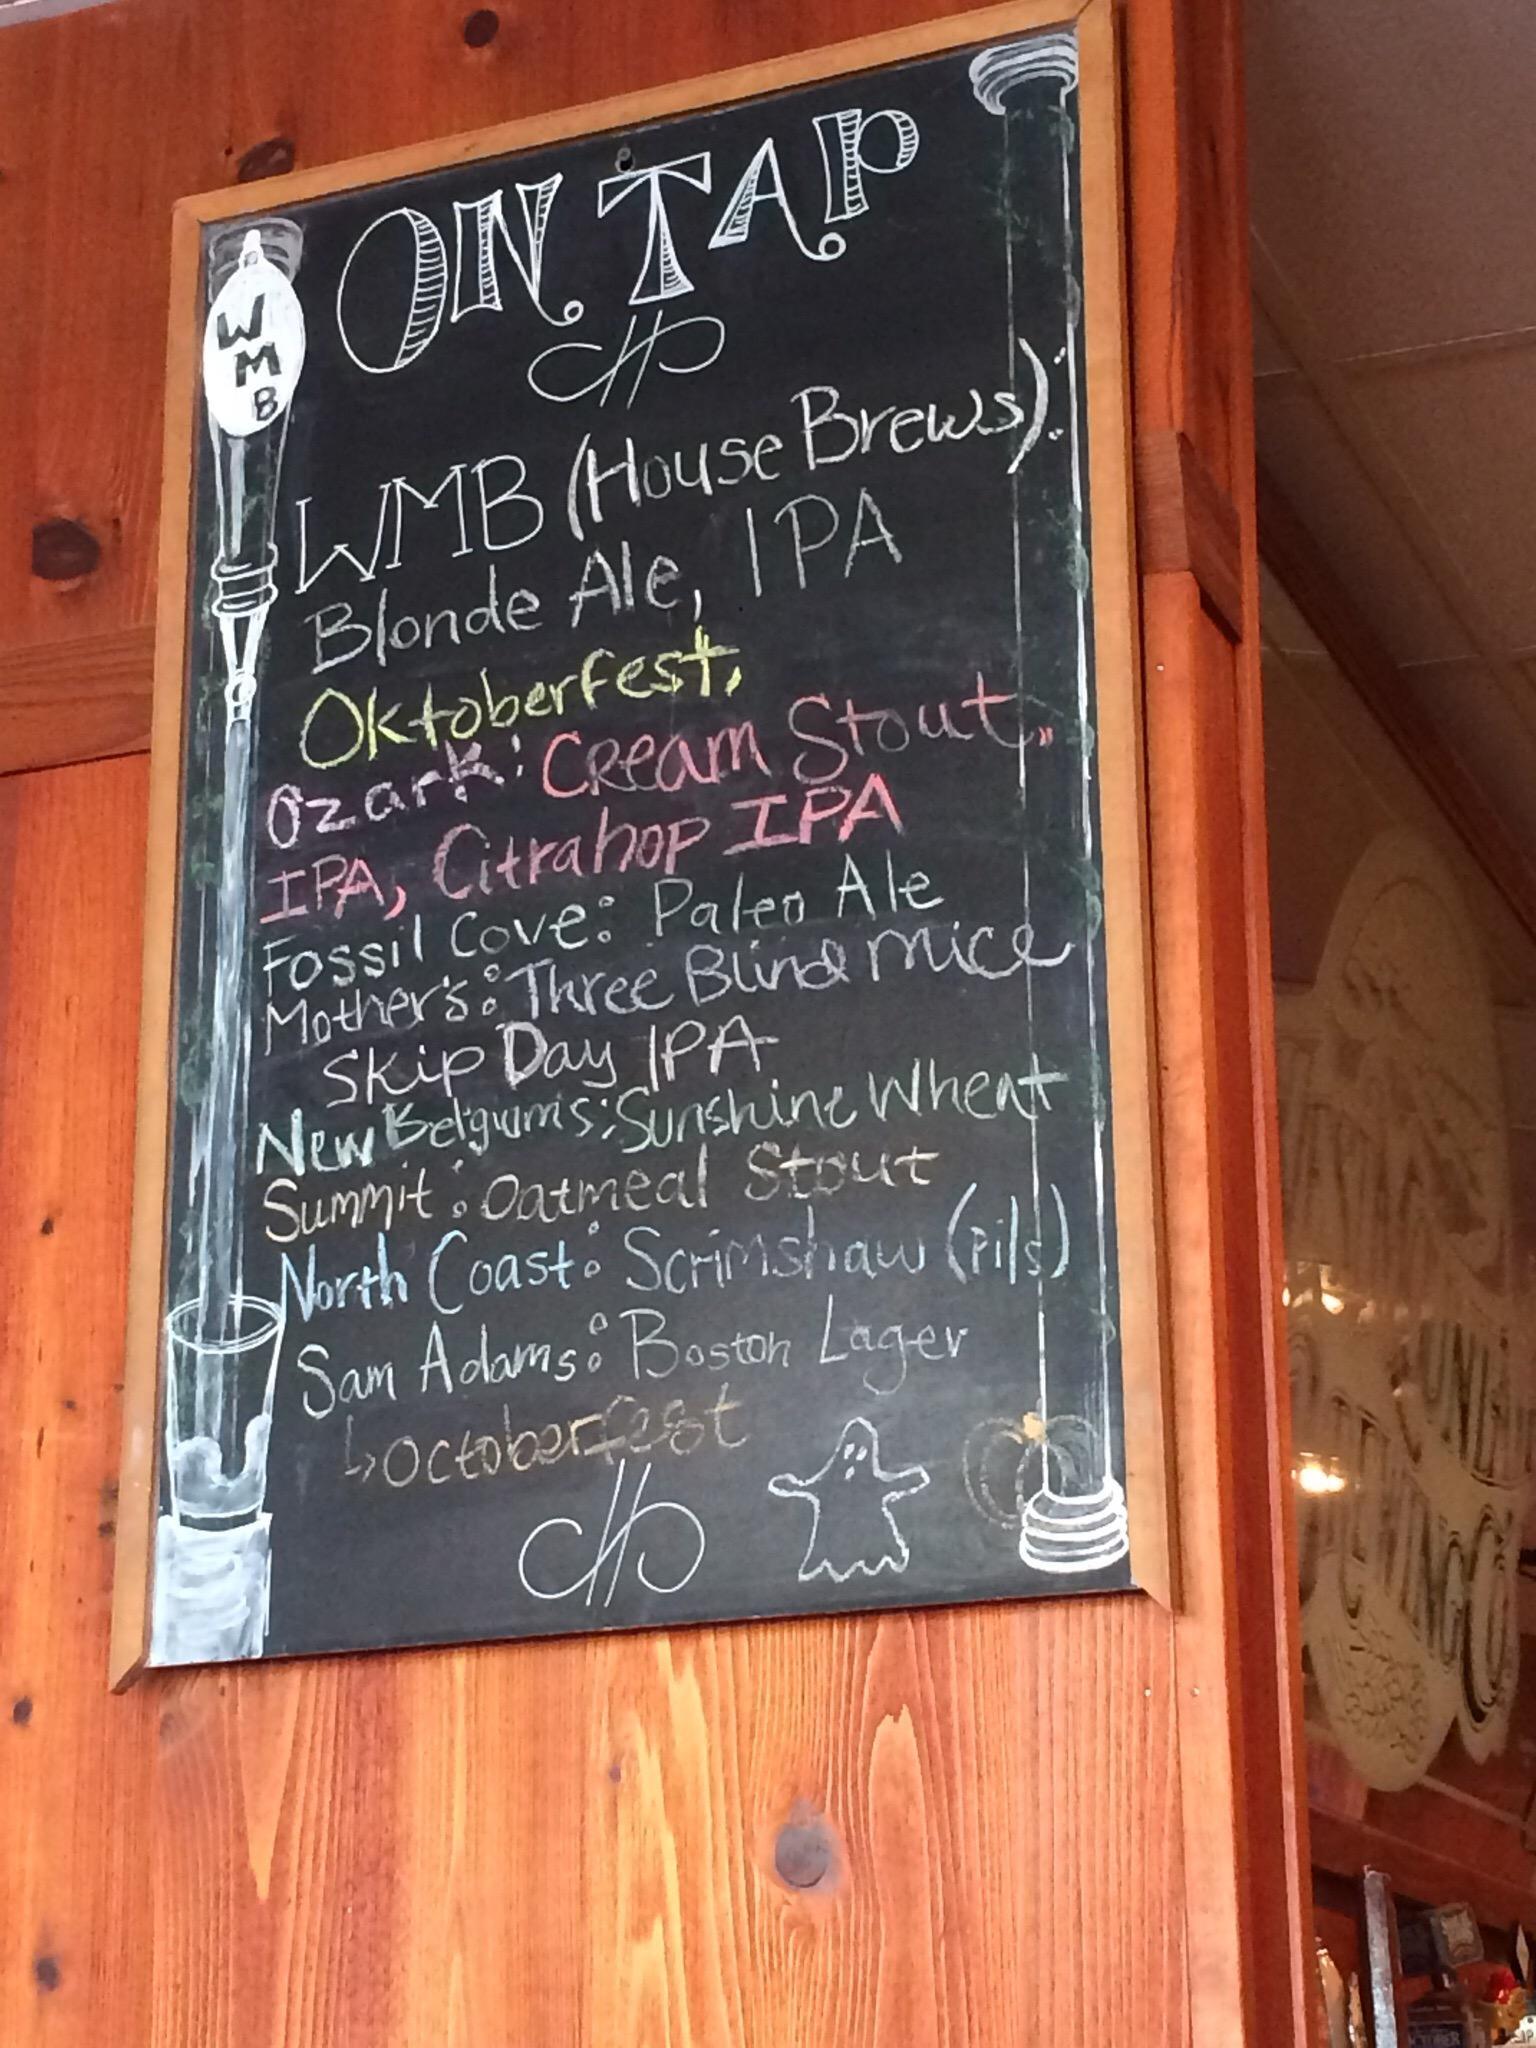 ON TAP
W
M
B
WMB (House Brews):
Blonde Ale, IPA
Oktoberfest,
Ozark: Cream Stout,
IPA, Citrahop IPA
Fossil Cove: Paleo Ale
Mother's: Three Blind mice
Skip Day IPA
New Belgium's: Sunshine Wheat
Summit: Oatmeal Stout
North Coast: Scrimshaw (Pils)
Sam Adams: Boston Lager
↳ Octoberfest